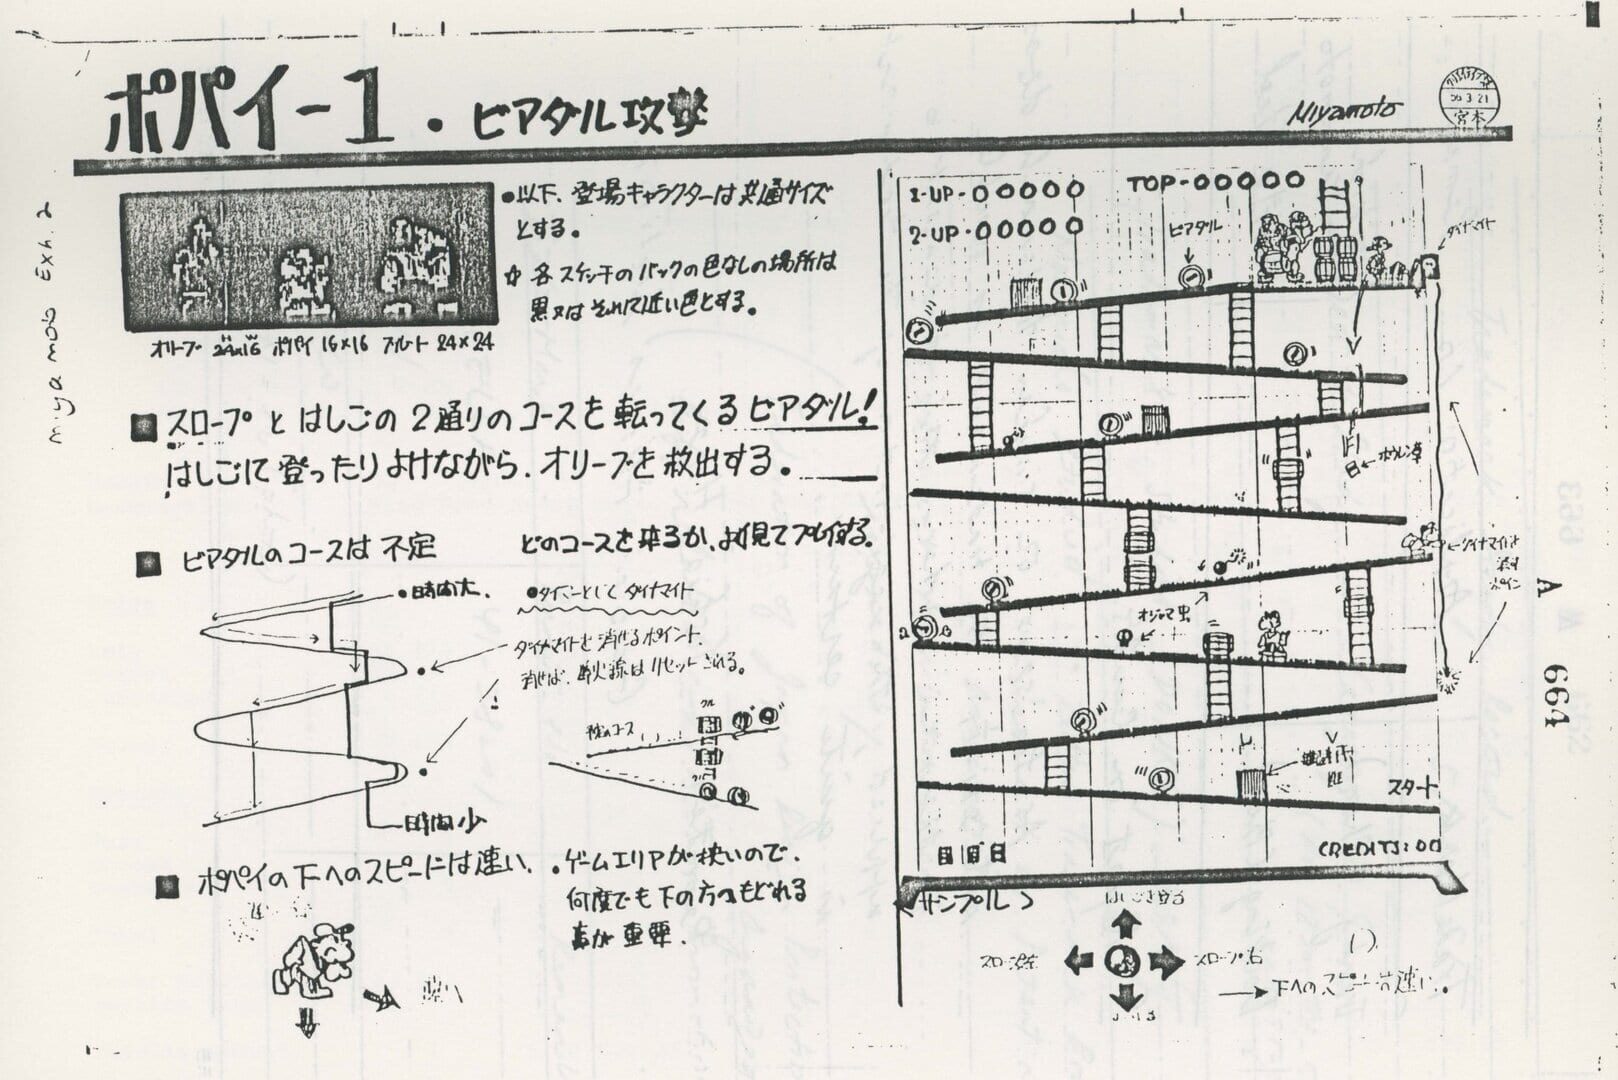 ポパイ-1・ビアダル攻撃
Miyamoto
56.3.21
宮本
miyamoto Exh. 2
●以下、登場キャラクターは共通サイズ
とする。
☆ 各スケッチのバックの色なしの場所は
黒又はそれに近い色とする。
オリーブ 24×16 ポパイ 16×16 ブルート 24×24
■スロープとはしごの2通りのコースを転ってくるビアダル!
はしごにて登ったりよけながら、オリーブを救出する。
■ビアダルのコースは不定
どのコースを来るか、よく見てプレイする。
・時間大
●タイマーとして ダイナマイト
ダイナマイトを消せるポイント、
消せば、導火線はリセットされる。
コース
時間少
■ポパイの下へのスピードは速い、
・ゲームエリアが狭いので、
何度でも下の方へもどれる
事が重要、
速い
1-UP-00000
TOP-00000
2-UP-00000
ビアダル
ダイナマイト
ホウレン草
ダイナマイトを
消す
ポイント
オジャマ虫
スタート
CREDITS:00
サンプル
はしごを登る
スロープ左
スロープ右
→下へのスピードは速い。
A
A
664